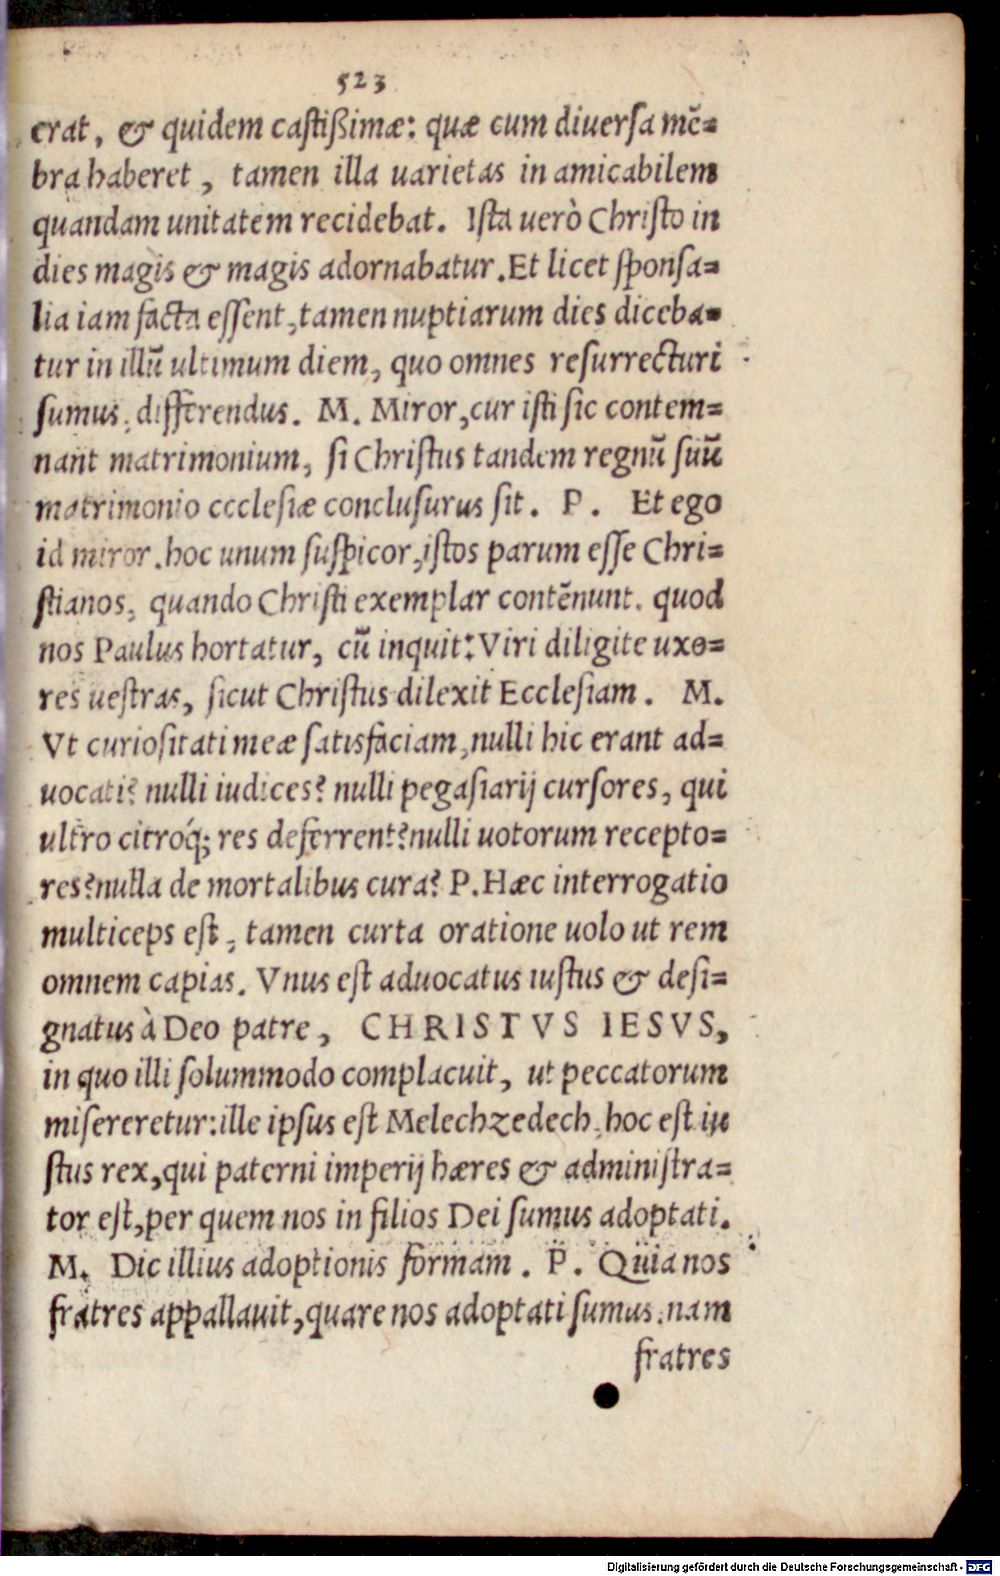 523
erat, & quidem castißimæ: quæ cum diuersa mē=
bra haberet, tamen illa uarietas in amicabilem
quandam unitatem recidebat. Ista uerò Christo in
dies magis & magis adornabatur. Et licet sponsa=
lia iam facta essent, tamen nuptiarum dies diceba=
tur in illū ultimum diem, quo omnes resurrecturi
sumus, differendus. M. Miror, cur isti sic contem=
nant matrimonium, si Christus tandem regnū suū
matrimonio ecclesiæ conclusurus sit. P. Et ego
id miror. hoc unum suspicor, istos parum esse Chri=
stianos, quando Christi exemplar contēnunt. quod
nos Paulus hortatur, cū inquit: Viri diligite uxo=
res uestras, sicut Christus dilexit Ecclesiam. M.
Vt curiositati meæ satisfaciam, nulli hic erant ad=
uocati? nulli iudices? nulli pegasiarij cursores, qui
ultro citróq; res deferrent? nulli uotorum recepto=
res? nulla de mortalibus cura? P. Hæc interrogatio
multiceps est, tamen curta oratione uolo ut rem
omnem capias. Vnus est aduocatus iustus & desi=
gnatus à Deo patre, CHRISTVS IESVS,
in quo illi solummodo complacuit, ut peccatorum
misereretur: ille ipsus est Melechzedech, hoc est iu
stus rex, qui paterni imperij hæres & administra=
tor est, per quem nos in filios Dei sumus adoptati.
M. Dic illius adoptionis formam. P. Quia nos
fratres appallauit, quare nos adoptati sumus. nam
fratres
Digitalisierung gefördert durch die Deutsche Forschungsgemeinschaft - DFG